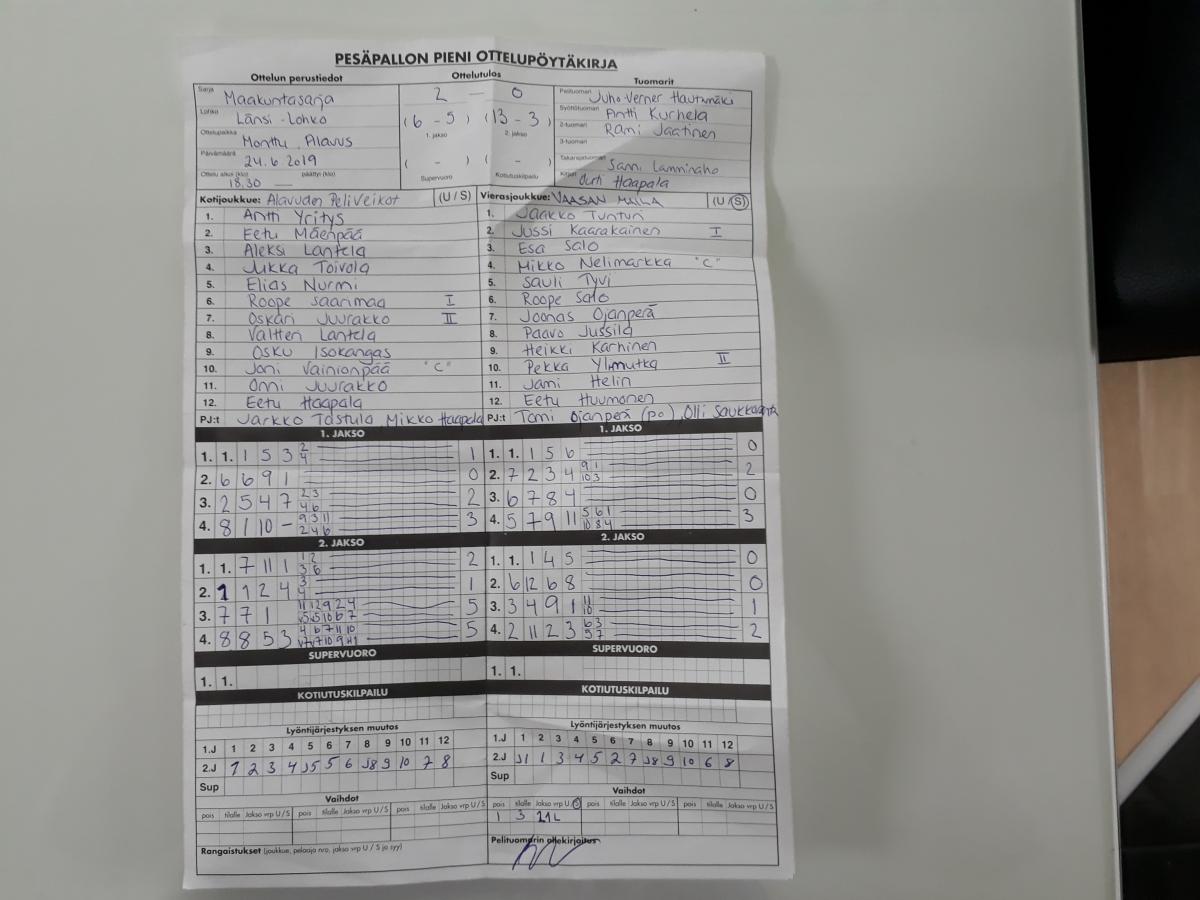 PESÄPALLON PIENI OTTELUPÖYTÄKIRJA
Ottelun perustiedot Ottelutulos Tuomarit
Sarja Maakuntasarja 2 — 0 Pelituomari Juho-Verner Hautamäki
Lohko Länsi-Lohko (6 - 5) (13 - 3) Syöttötuomari Antti Kurhela
1. jakso 2. jakso 2-tuomari Rami Jaatinen
Ottelupaikka Monttu, Alavus 3-tuomari
Päivämäärä 24.6.2019 ( - ) ( - ) Takarajatuomari Sami Lamminaho
Ottelu alkoi (klo) 18.30 — päättyi (klo) Supervuoro Kotiutuskilpailu Kirjuri Outi Haapala
Kotijoukkue: Alavuden PeliVeikot (U / S) Vierasjoukkue: VAASAN MAILA (U / S)
1. Antti Yritys 1. Jaakko Tuntun
2. Eetu Mäenpää 2. Jussi Kaarakainen I
3. Aleksi Lantela 3. Esa Salo
4. Jukka Toivola 4. Mikko Nelimarkka "C"
5. Elias Nurmi 5. Sauli Tyvi
6. Roope Saarimaa I 6. Roope Salo
7. Oskari Juurakko II 7. Joonas Ojanperä
8. Valtteri Lantela 8. Paavo Jussila
9. Osku Isokangas 9. Heikki Karhinen
10. Joni Vainionpää "C" 10. Pekka Ylimutka II
11. Onni Juurakko 11. Jami Helin
12. Eetu Haapala 12. Eetu Huumonen
PJ:t Jarkko Tastula, Mikko Haapala PJ:t Tomi Ojanperä (po), Olli
1. JAKSO 1. JAKSO
1. 1. 1 5 3 2 4 1 1. 1. 1 5 6 0
2. 6 6 9 1 0 2. 7 2 3 4 9 1 10 3 2
3. 2 5 4 7 2 3 4 6 2 3. 6 7 8 4 0
4. 8 1 10 - 9 3 11 2 4 6 3 4. 5 7 9 11 5 6 1 10 8 4 3
2. JAKSO 2. JAKSO
1. 1. 7 11 1 1 2 3 6 2 1. 1. 1 4 5 0
2. 1 1 2 4 3 4 1 2. 6 12 6 8 0
3. 7 7 1 11 12 9 2 4 5 3. 3 4 9 1 11 10 1
4. 8 8 5 3 4 6 7 11 10 5 4. 2 11 2 3 6 3 5 7 2
SUPERVUORO SUPERVUORO
1. 1. 1. 1.
KOTIUTUSKILPAILU KOTIUTUSKILPAILU
Lyöntijärjestyksen muutos Lyöntijärjestyksen muutos
1.J 1 2 3 4 5 6 7 8 9 10 11 12 1.J 1 2 3 4 5 6 7 8 9 10 11 12
2.J 1 2 3 4 J5 5 6 J8 9 10 7 8 2.J J1 1 3 4 5 2 7 J8 9 10 6 8
Sup Sup
Vaihdot Vaihdot
pois tilalle Jakso vrp U / S pois tilalle Jakso vrp U / S pois tilalle Jakso vrp U / S pois tilalle Jakso vrp U / S pois tilalle Jakso vrp U / S pois tilalle Jakso vrp U / S
1 3 21L
Rangaistukset (joukkue, pelaaja nro, jakso vrp U / S ja syy) Pelituomarin allekirjoitus